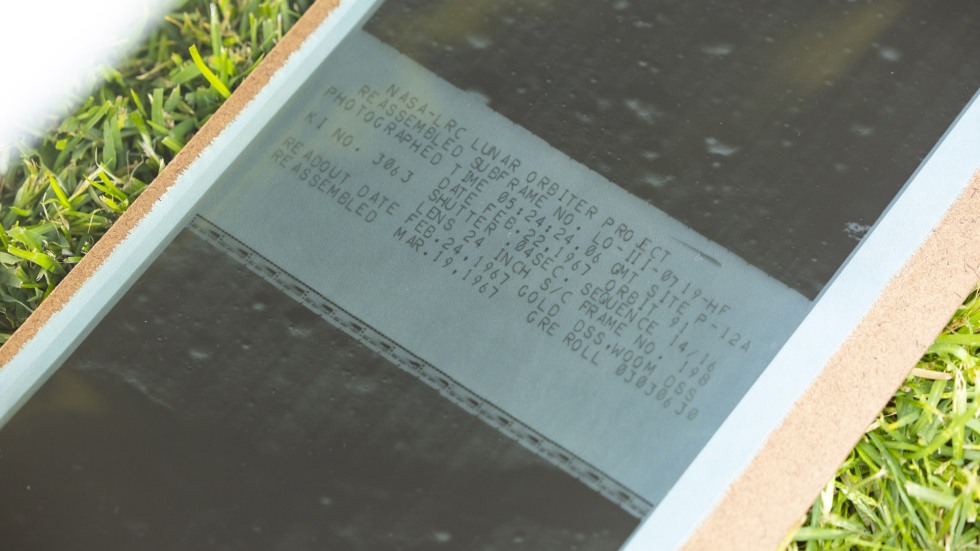 NASA-LRC LUNAR ORBITER PROJECT
REASSEMBLED SUBFRAME NO. LO-III-0719-HF
PHOTOGRAPHED TIME 05:24:24.06 GMT SITE P-12A
DATE FEB.22,1967 ORBIT 91
KI NO. 3063 SHUTTER .04SEC. SEQUENCE 14/16
LENS 24 INCH S/C FRAME NO. 198
READOUT DATE FEB.24,1967 GOLD DSS,WOOM DSS
REASSEMBLED MAR.19,1967 GRE ROLL 03030630